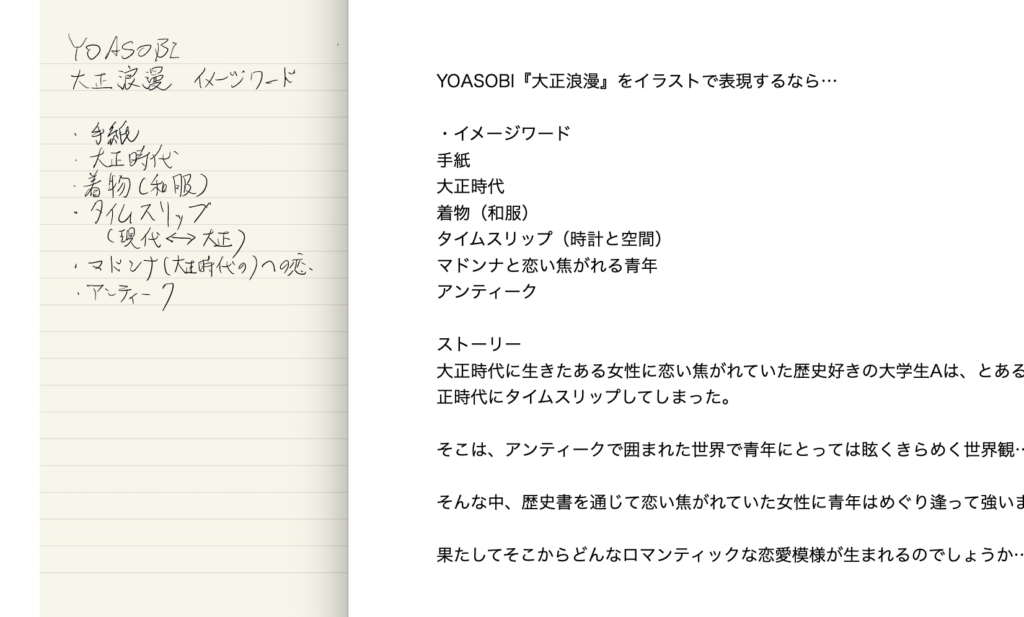 YOASOBI
大正浪漫 イメージワード
・手紙
・大正時代
・着物(和服)
・タイムスリップ
(現代↔大正)
・マドンナ(大正時代の)への恋、
・アンティーク
YOASOBI『大正浪漫』をイラストで表現するなら…
・イメージワード
手紙
大正時代
着物（和服）
タイムスリップ（時計と空間）
マドンナと恋い焦がれる青年
アンティーク
ストーリー
大正時代に生きたある女性に恋い焦がれていた歴史好きの大学生Aは、とある
正時代にタイムスリップしてしまった。
そこは、アンティークで囲まれた世界で青年にとっては眩くきらめく世界観…
そんな中、歴史書を通じて恋い焦がれていた女性に青年はめぐり逢って強いま
果たしてそこからどんなロマンティックな恋愛模様が生まれるのでしょうか…